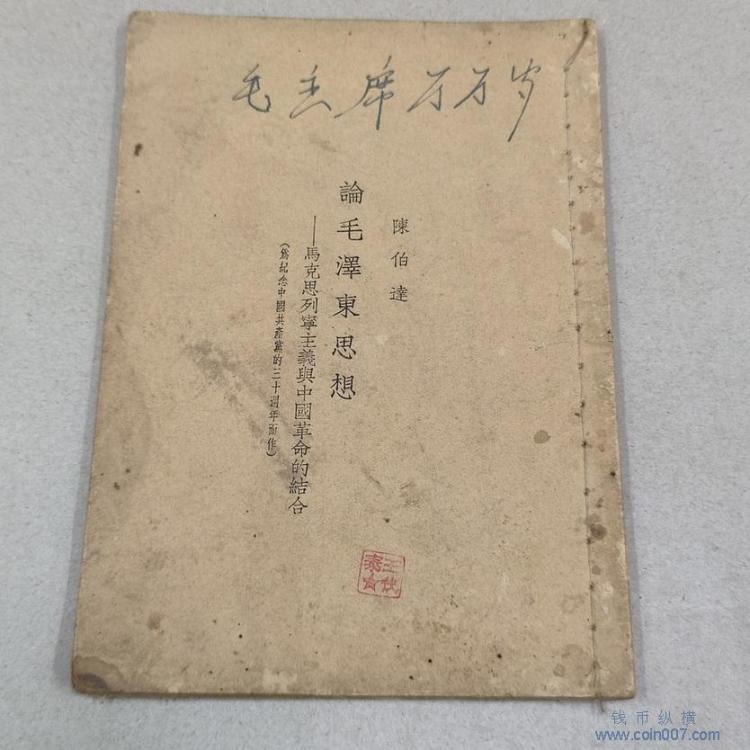 毛主席万万岁
陳伯達
論毛澤東思想
——馬克思列寧主義與中國革命的結合
(爲紀念中國共產黨的三十週年而作)
钱币纵横
www.coin007.com